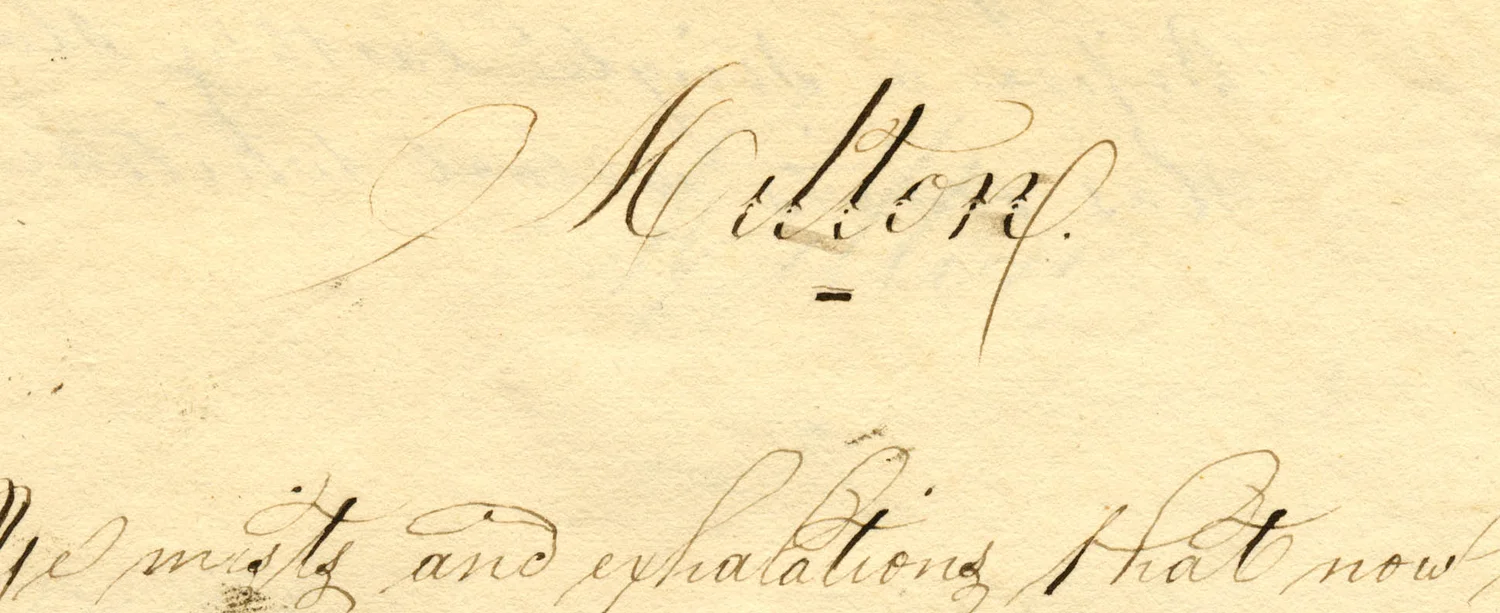 Milton.
Ye mists and exhalations that now